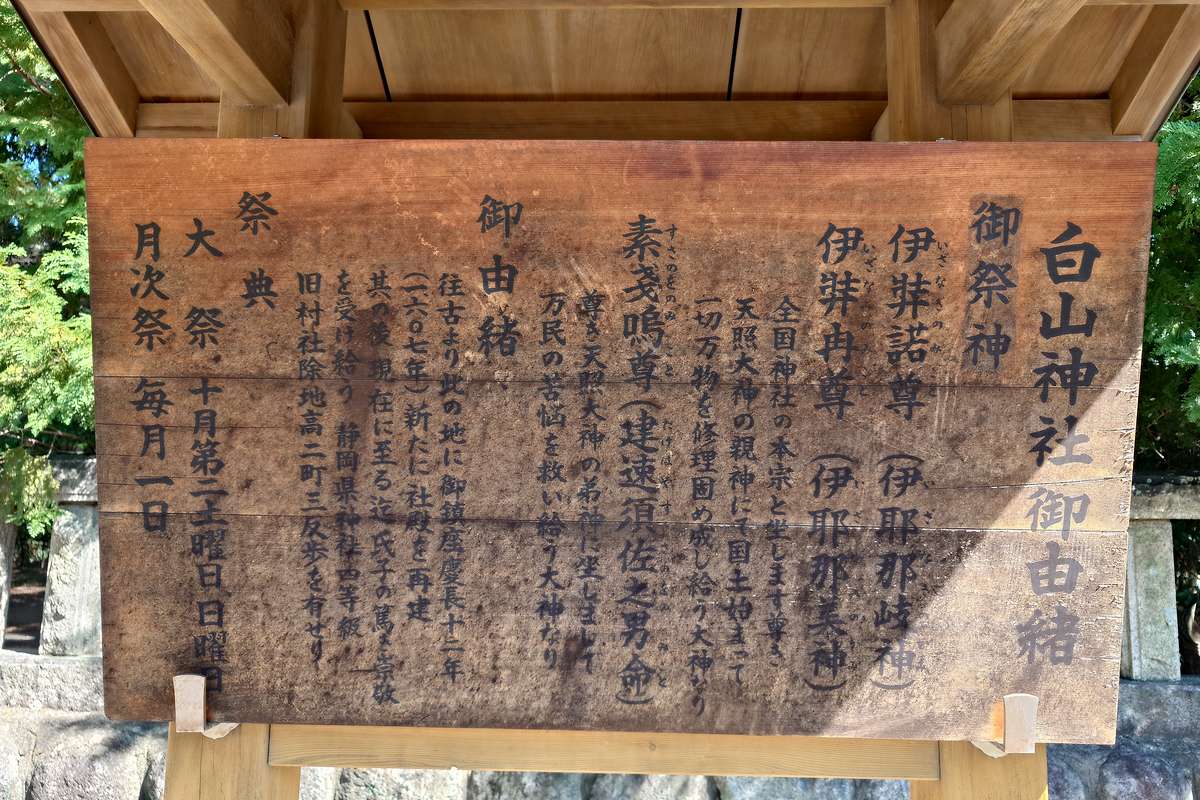 白山神社御由緒
御祭神
伊弉諾尊(伊耶那岐神)
いざなぎのみこと
伊弉冉尊(伊耶那美神)
いざなみのみこと
全国神社の本宗と坐します尊き
天照大神の親神にて国土始まって
一切万物を修理固め成し給う大神なり
素戔嗚尊(建速須佐之男命)
すさのをのみこと
たけはやすさのをのみこと
尊き天照大神の弟神に坐しまして
万民の苦悩を救い給う大神なり
御由緒
往古より此の地に御鎮座慶長十二年
(一六〇七年)新たに社殿を再建
其の後現在に至る迄氏子の篤き崇敬
を受け給う 静岡県神社四等級
旧村社除地高二町三反歩を有せり
祭典
大祭 十月第二土曜日日曜日
月次祭 毎月一日